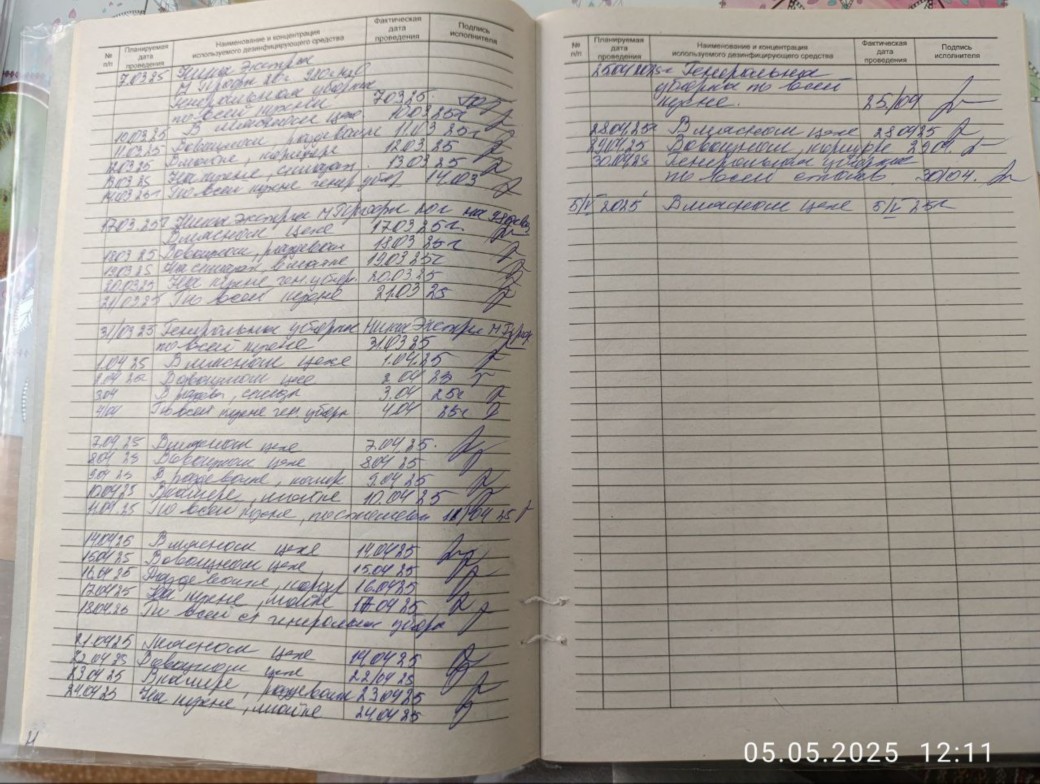 № п/п Планируемая дата проведения Наименование и концентрация используемого дезинфицирующего средства Фактическая дата проведения Подпись исполнителя
7.03.25 Ника Экстра
М Профи
генеральная уборка
по всей кухни 7.03.25
10.03.25 В мясном цехе 10.03.25г
11.03.25 В овощном, раздевалке 11.03.25г
12.03.25 В мойке, коридоре 12.03.25
13.03.25 На кухне, складах 13.03.25
14.03.25г По всей кухне генер. убор. 14.03
17.03.25г Ника Экстра М Профи 20г на
В мясном цехе 17.03.25г
18.03.25 В овощном, раздевал 18.03.25г
19.03.25 На складах, в мойке 19.03.25г
20.03.25 На кухне ген. убор. 20.03.25
21/03.25 По всей кухне 21.03.25
31/03.25 Генеральная уборка Ника Экстра М Профи
по всей кухне 31.03.25
1.04.25 В мясном цехе 1.04.25
В овощном цехе 2.04.25
3.04 3.04 25г
4/04 По всей кухне ген. уборк 4.04 25г
7.04.25 В мясном цехе 7.04.25.
8.04.25 В овощном цехе 8.04.25
9.04.25 В раздевалке 9.04.25
10.04.25 мойке 10.04.25
11.04.25 По всей кухне 11/04.25
14.04.25 В мясном цехе 14.04.25
15.04.25 В овощном цехе 15.04.25
16.04.25 Раздевалке, коридр 16.04.25
17.04.25 На кухне, мойке 17.04.25
18.04.25 По всей ст генеральн уборк
21.04.25 Мясном цехе 14.04.25
22.04.25 В овощном цехе 22/04.25
23.04.25 раздевалк 23.04.25
24.04.25 На кухне, мойке 24.04.25
№ п/п Планируемая дата проведения Наименование и концентрация используемого дезинфицирующего средства Фактическая дата проведения Подпись исполнителя
25.04.2025г Генеральная
уборка по всей
кухне. 25/04
28.04.25г В мясном цехе 28.04.25
29.04.25 В овощном, коридоре 29.04.
30.04.25 Генеральная уборка
по всей столов. 30/04.
5/V 2025 В мясном цехе 5/V 25г
05.05.2025 12:11